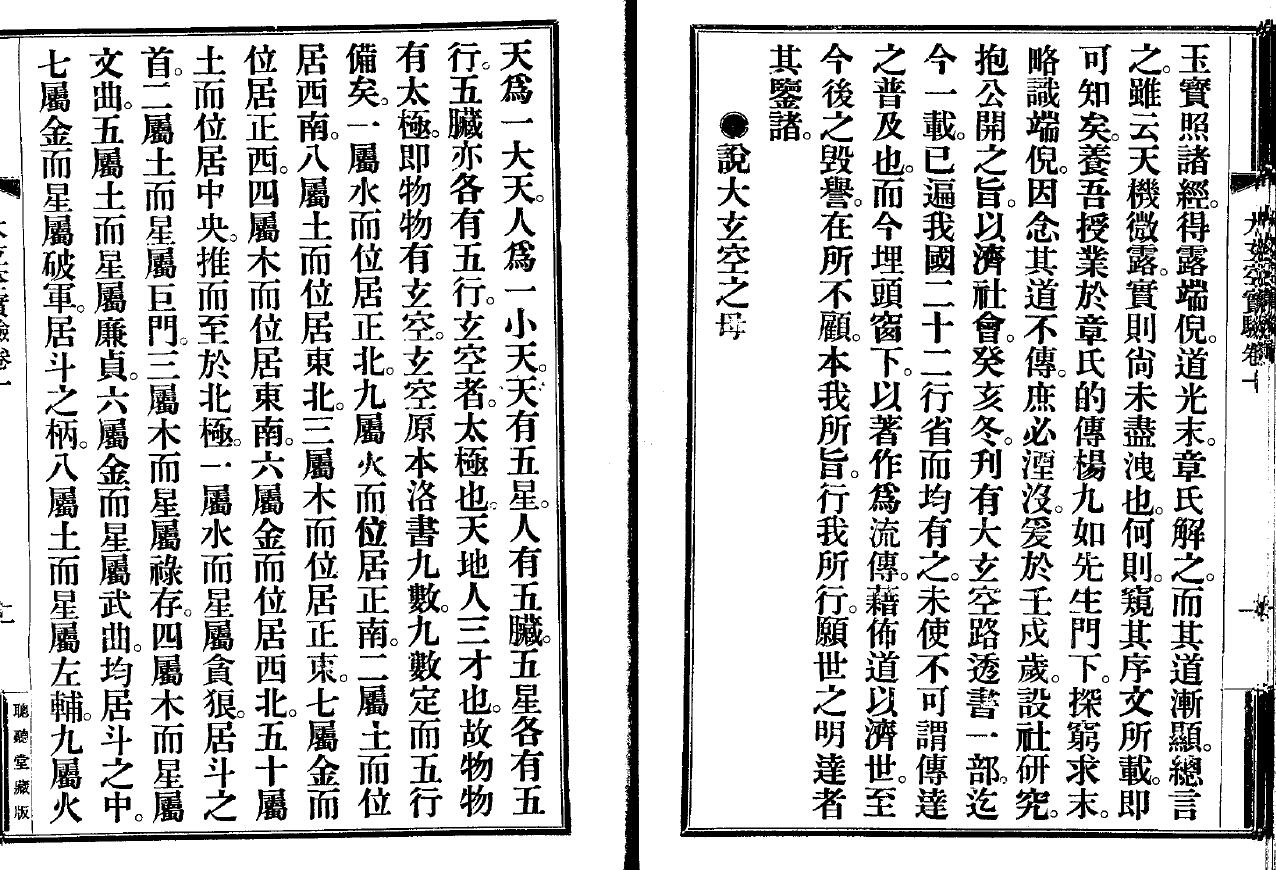 玉寶照諸經。得露端倪。道光末。章氏解之。而其道漸顯。總言
之。雖云天機微露。實則尚未盡洩也。何則。窺其序文所載。即
可知矣。養吾授業於章氏的傳楊九如先生門下。探窮求末。
略識端倪。因念其道不傳。庶必湮沒。爰於壬戌歲。設社研究。
抱公開之旨。以濟社會。癸亥冬。刋有大玄空路透書一部。迄
今一載。已遍我國二十二行省而均有之。未使不可謂傳達
之普及也。而今埋頭窗下。以著作爲流傳。藉佈道以濟世。至
今後之毀譽。在所不顧。本我所旨。行我所行。願世之明達者
其鑒諸。
●說大玄空之母
天爲一大天。人爲一小天。天有五星。人有五臟。五星各有五
行。五臟亦各有五行。玄空者。太極也。天地人三才也。故物物
有太極。即物物有玄空。玄空原本洛書九數。九數定而五行
備矣。一屬水而位居正北。九屬火而位居正南。二屬土而位
居西南。八屬土而位居東北。三屬木而位居正東。七屬金而
位居正西。四屬木而位居東南。六屬金而位居西北。五十屬
土而位居中央。推而至於北極。一屬水而星屬貪狼。居斗之
首。二屬土而星屬巨門。三屬木而星屬祿存。四屬木而星屬
文曲。五屬土而星屬廉貞。六屬金而星屬武曲。均居斗之中。
七屬金而星屬破軍。居斗之柄。八屬土而星屬左輔。九屬火
聽聽堂藏版